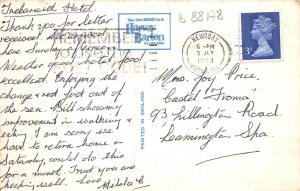 Trebarwith Hotel.
Thank you for letter
received
here Sunday afternoon
Weather good, hotel food
excellent. Enjoying the
change and not just out of
the sea. Bill showing
improvement in walking &
eating. I am sorry we
have to return home on
Saturday, could do this
for a month. Trust you are
keeping well. Love
Harvey
Barton
PRINTED IN ENGLAND
B 88178
NEWQUAY
6 - PM
3 JLY
1973
3P
Mrs. Joy Price,
Castel "Froma"
93, Lillington Road
Leamington Spa.